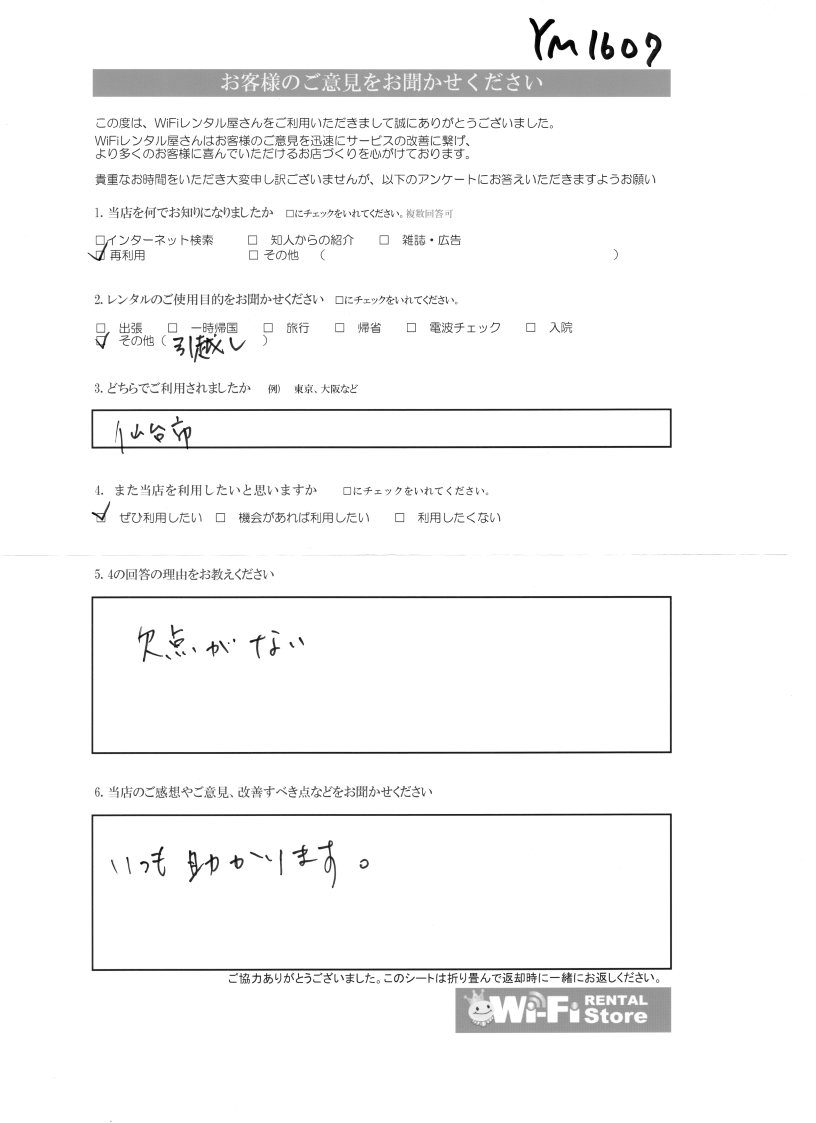 YM1607
お客様のご意見をお聞かせください
この度は、WiFiレンタル屋さんをご利用いただきまして誠にありがとうございました。
WiFiレンタル屋さんはお客様のご意見を迅速にサービスの改善に繋げ、
より多くのお客様に喜んでいただけるお店づくりを心がけております。
貴重なお時間をいただき大変申し訳ございませんが、以下のアンケートにお答えいただきますようお願い
1. 当店を何でお知りになりましたか □にチェックをいれてください。複数回答可
□インターネット検索 □ 知人からの紹介 □ 雑誌・広告
☑ 再利用 □ その他 ( )
2. レンタルのご使用目的をお聞かせください □にチェックをいれてください。
□ 出張 □ 一時帰国 □ 旅行 □ 帰省 □ 電波チェック □ 入院
☑ その他 ( 引越し )
3. どちらでご利用されましたか 例) 東京、大阪など
仙台市
4. また当店を利用したいと思いますか □にチェックをいれてください。
☑ ぜひ利用したい □ 機会があれば利用したい □ 利用したくない
5. 4の回答の理由をお教えください
欠点がない
6. 当店のご感想やご意見、改善すべき点などをお聞かせください
いつも助かります。
ご協力ありがとうございました。このシートは折り畳んで返却時に一緒にお返しください。
Wi-Fi RENTAL Store